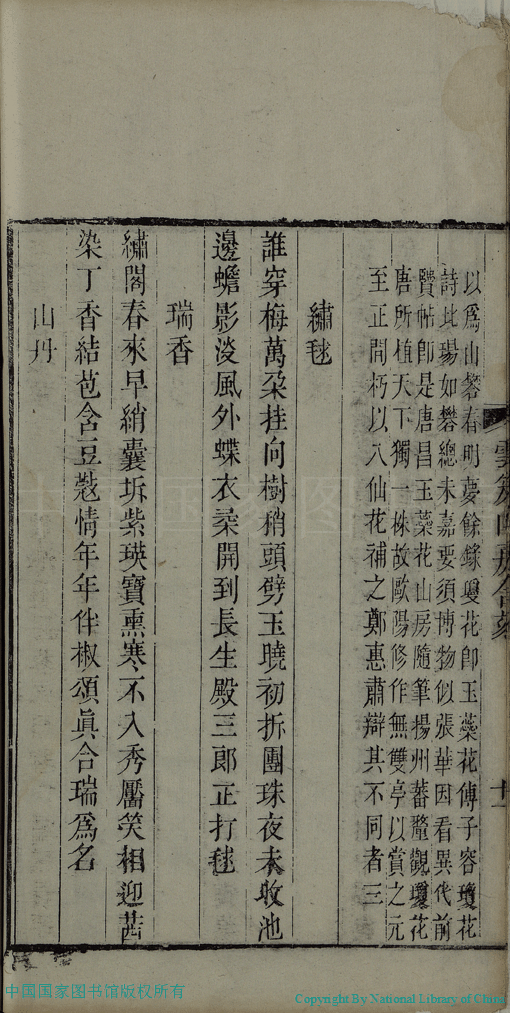 以爲山礬春明夢餘錄瓊花卽玉蘂花傅子容瓊花
詩比瑒如礬總未嘉要須博物似張華因看異代前
賢帖卽是唐昌玉蘂花山房隨筆揚州蕃釐觀瓊花
唐所植天下獨一株故歐陽修作無雙亭以賞之元
至正間朽以八仙花補之鄭惠肅辯其不同者三
繡毬
誰穿梅萬朶挂向樹稍頭劈玉曉初拆團珠夜未收池
邊蟾影淡風外蝶衣柔開到長生殿三郎正打毬
瑞香
繡閣春來早綃囊坼紫瑛寶熏寒不入秀靨笑相迎茜
染丁香結苞含豆蔲情年年伴椒頌眞合瑞爲名
山丹
十一
中国国家图书馆版权所有
Copyright By National Library of China